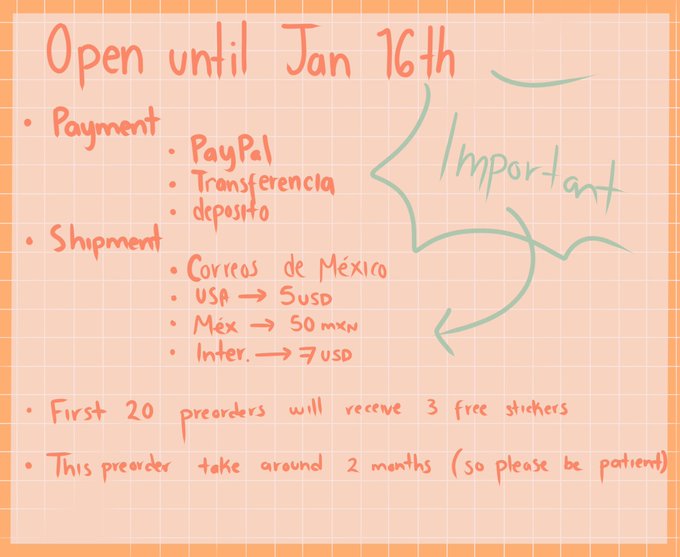 Open until Jan 16th
• Payment
• PayPal
• Transferencia
• deposito
Important
• Shipment
• Correos de México
• USA → 5 USD
• Méx → 50 MXN
• Inter. → 7 USD
• First 20 preorders will receive 3 free stickers
• This preorder take around 2 months (so please be patient)